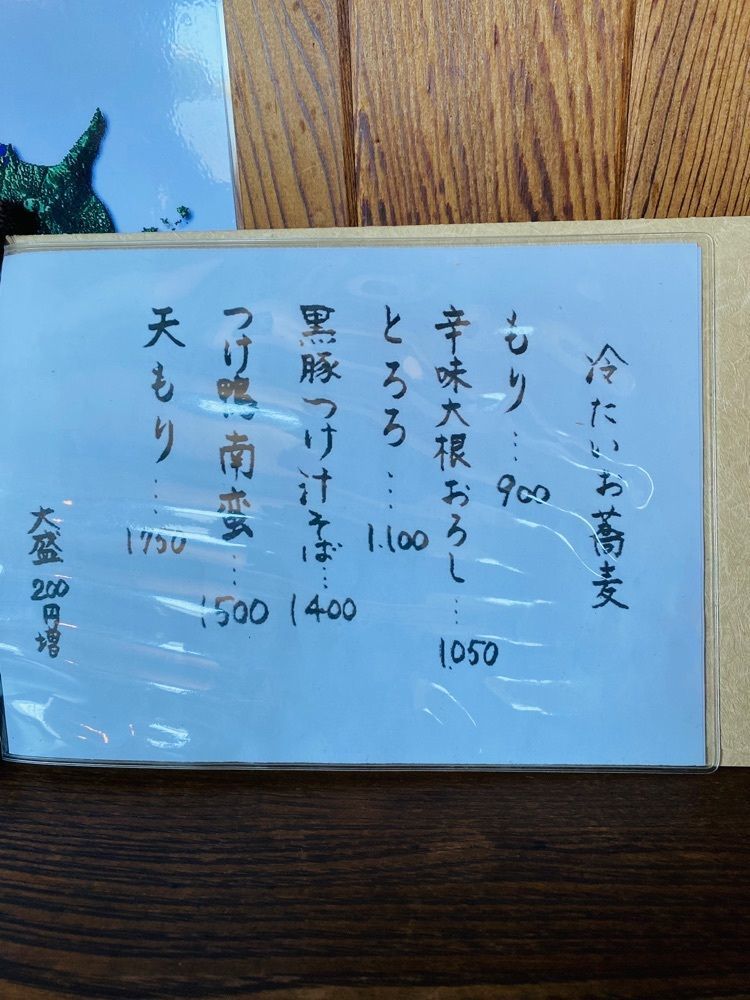 冷たいお蕎麦
もり…900
辛味大根おろし…1.050
とろろ…1.100
黒豚つけ汁そば…1400
つけ鴨南蛮…1500
天もり…1750
大盛200円増